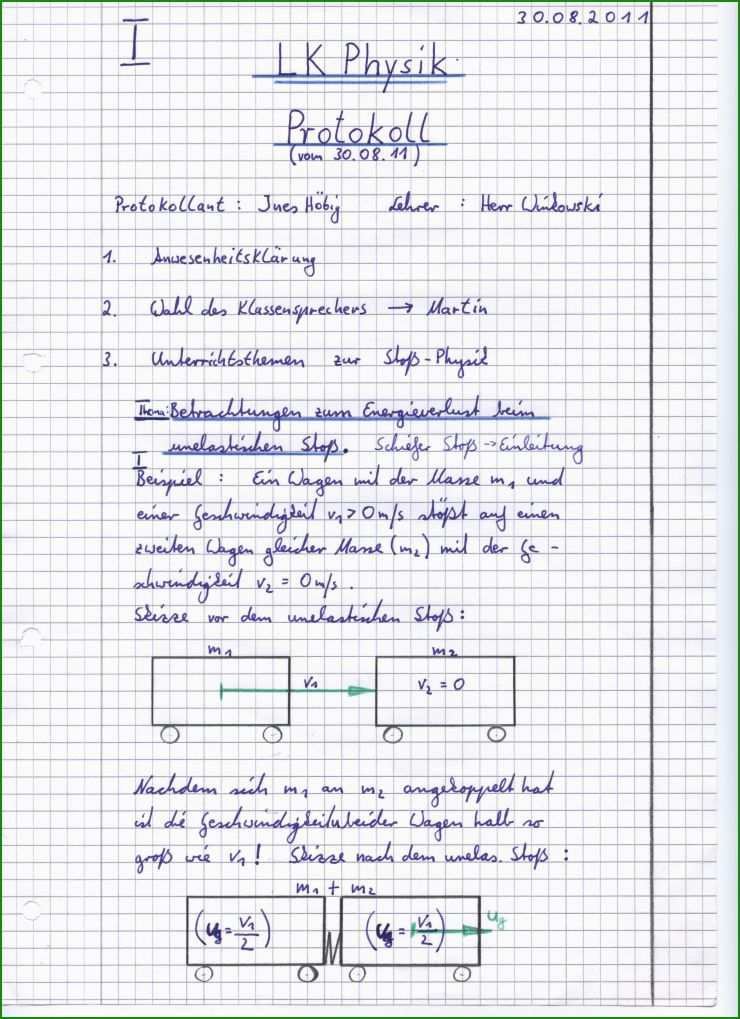 30.08.2011
I
LK Physik
Protokoll
(vom 30.08.11)
Protokollant : Ines Höbig Lehrer : Herr Winkowski
1. Anwesenheitsklärung
2. Wahl des Klassensprechers → Martin
3. Unterrichtsthemen zur Stoß-Physik
Thema: Betrachtungen zum Energieverlust beim
unelastischen Stoß. Schiefer Stoß → Einleitung
I
Beispiel : Ein Wagen mit der Masse m₁ und
einer Geschwindigkeit v₁ > 0 m/s stößt auf einen
zweiten Wagen gleicher Masse (m₂) mit der Ge-
schwindigkeit v₂ = 0 m/s.
Skizze vor dem unelastischen Stoß :
m₁ m₂
v₁ v₂ = 0
Nachdem sich m₁ an m₂ angekoppelt hat
ist die Geschwindigkeit beider Wagen halb so
groß wie v₁! Skizze nach dem unelas. Stoß :
m₁ + m₂
(ug = v₁/2) (ug = v₁/2) ug